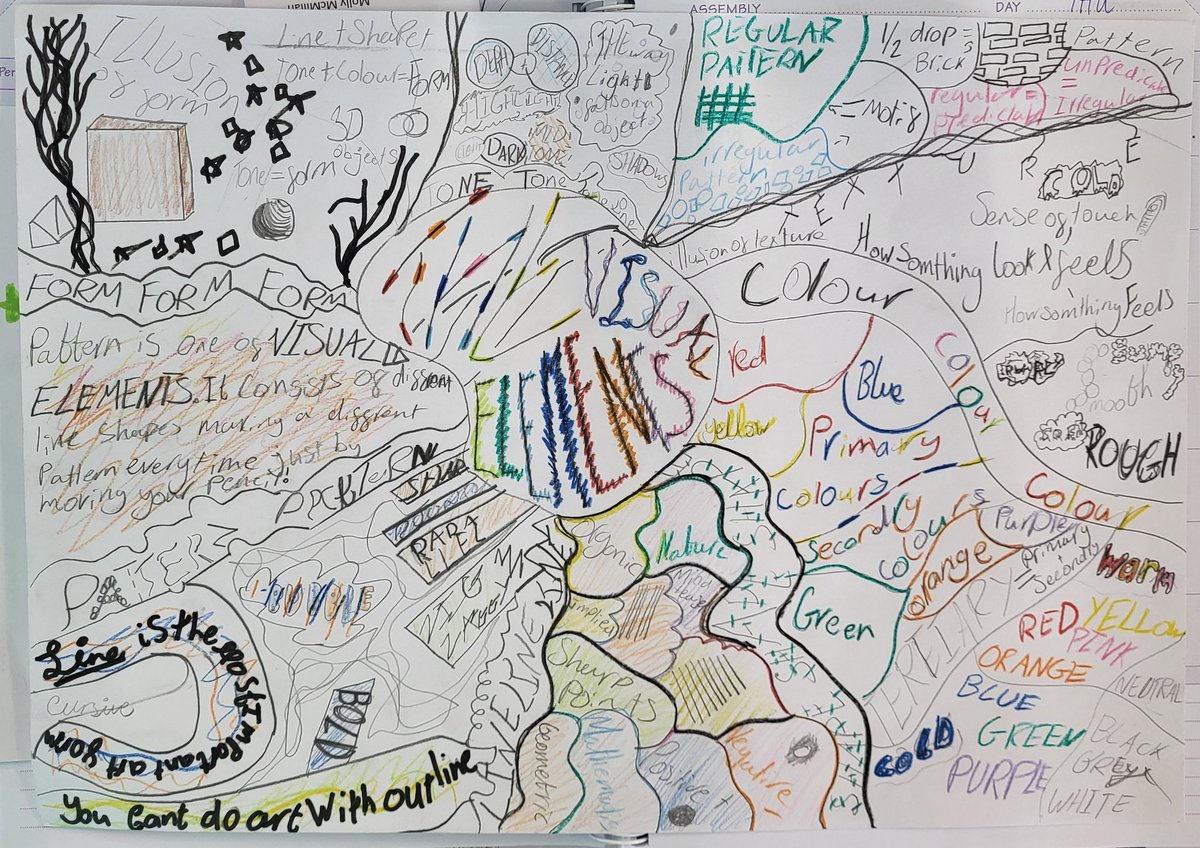 Molly McMillan
ASSEMBLY
DAY
ILLUSION
of form
Line + Shape
Tone + Colour = FORM
3D
objects
Tone = form
FORM FORM FORM
DEPTH + DISTANCE
HIGHLIGHT
LIGHT
DARK
MID
TONE
THE way
Light
gas on a
object
SHADOWS
TONE Tone
REGULAR
PATTERN
irregular
Pattern
1/2 drop =
Brick
Pattern
<= Motif
regular =
unPredicable
=
Irregular
T E X T U R E
COLD
Sense of touch
illusion of texture
How somthing look & feels
How somthing Feels
smooth
ROUGH
VISUAL
ELEMENTS
Pattern is one of VISUAL
ELEMENTS. It consists of diffrent
line shapes making a diffrent
Pattern everytime just by
moving your pencil!
PATTERN
PARA
ZIG
BOLD
Line is the most Importanta art form
cursive
You Cant do art With out line
Colour
Colour
Colour
red
Blue
yellow
Primary
Colours
Secondly
Colours
Green
orange
Purple
Primary
= Secondly
TERTIARY
warm
RED YELLOW
PINK
ORANGE
NEUTRAL
BLUE
COLD
GREEN
PURPLE
BLACK
GREY
WHITE
Organic
Nature
implied
Sharp
Points
Geometric
Mathematic
Positive +
Negative